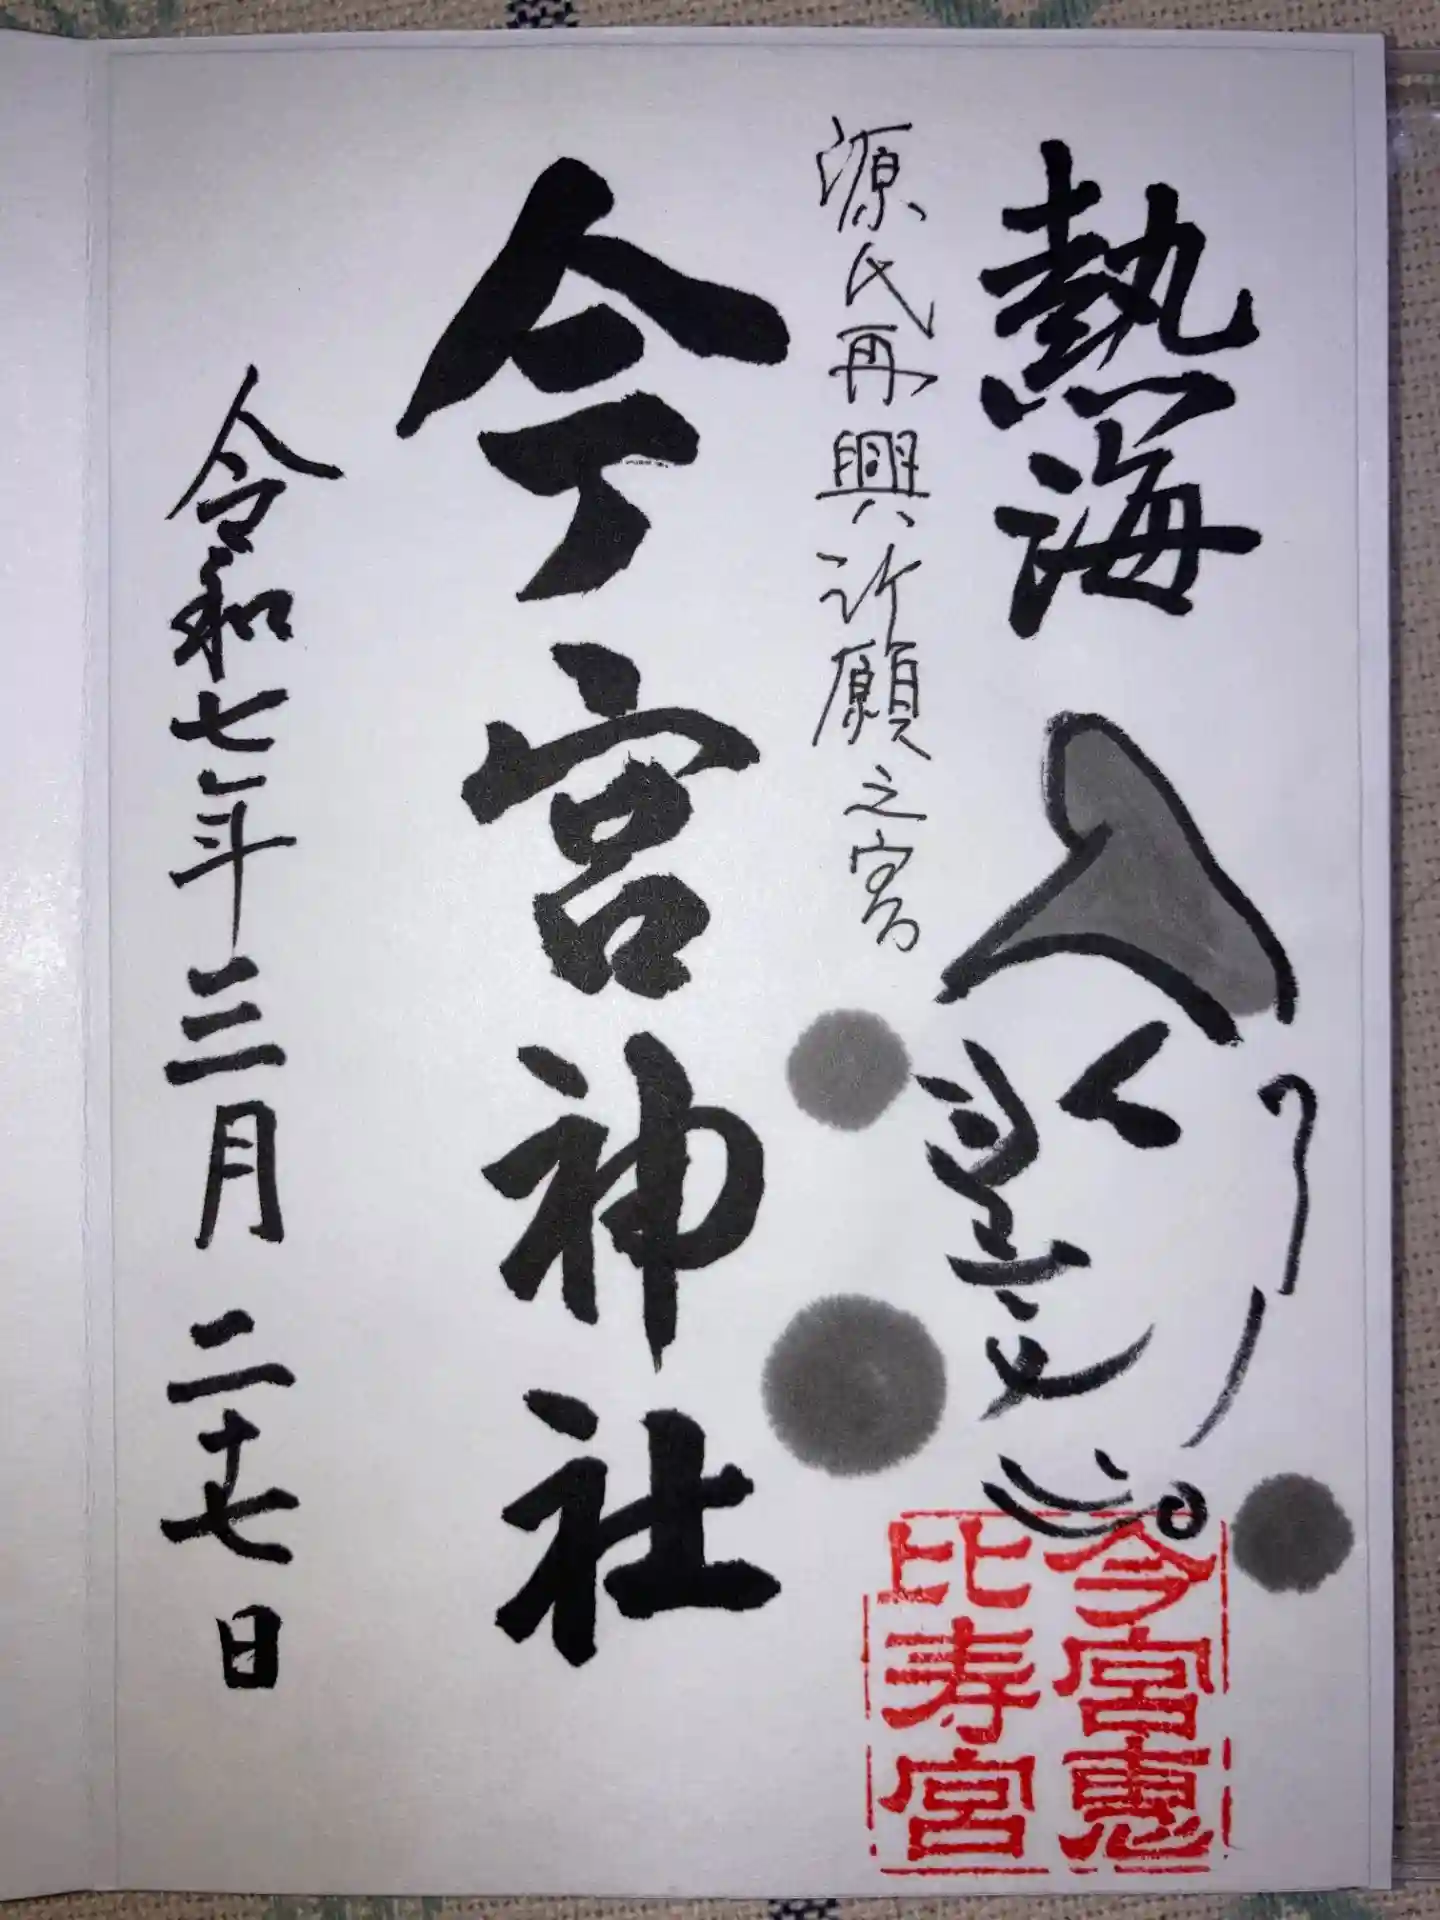 熱海
源氏再興許願之宮
今宮神社
令和七年三月二十七日
今宮恵
比寿宮